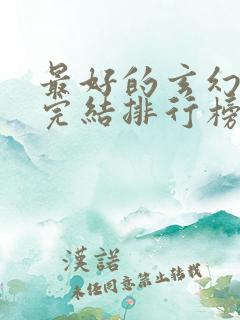 最好的玄幻
完結排行榜
漢諾
未经同意禁止转载